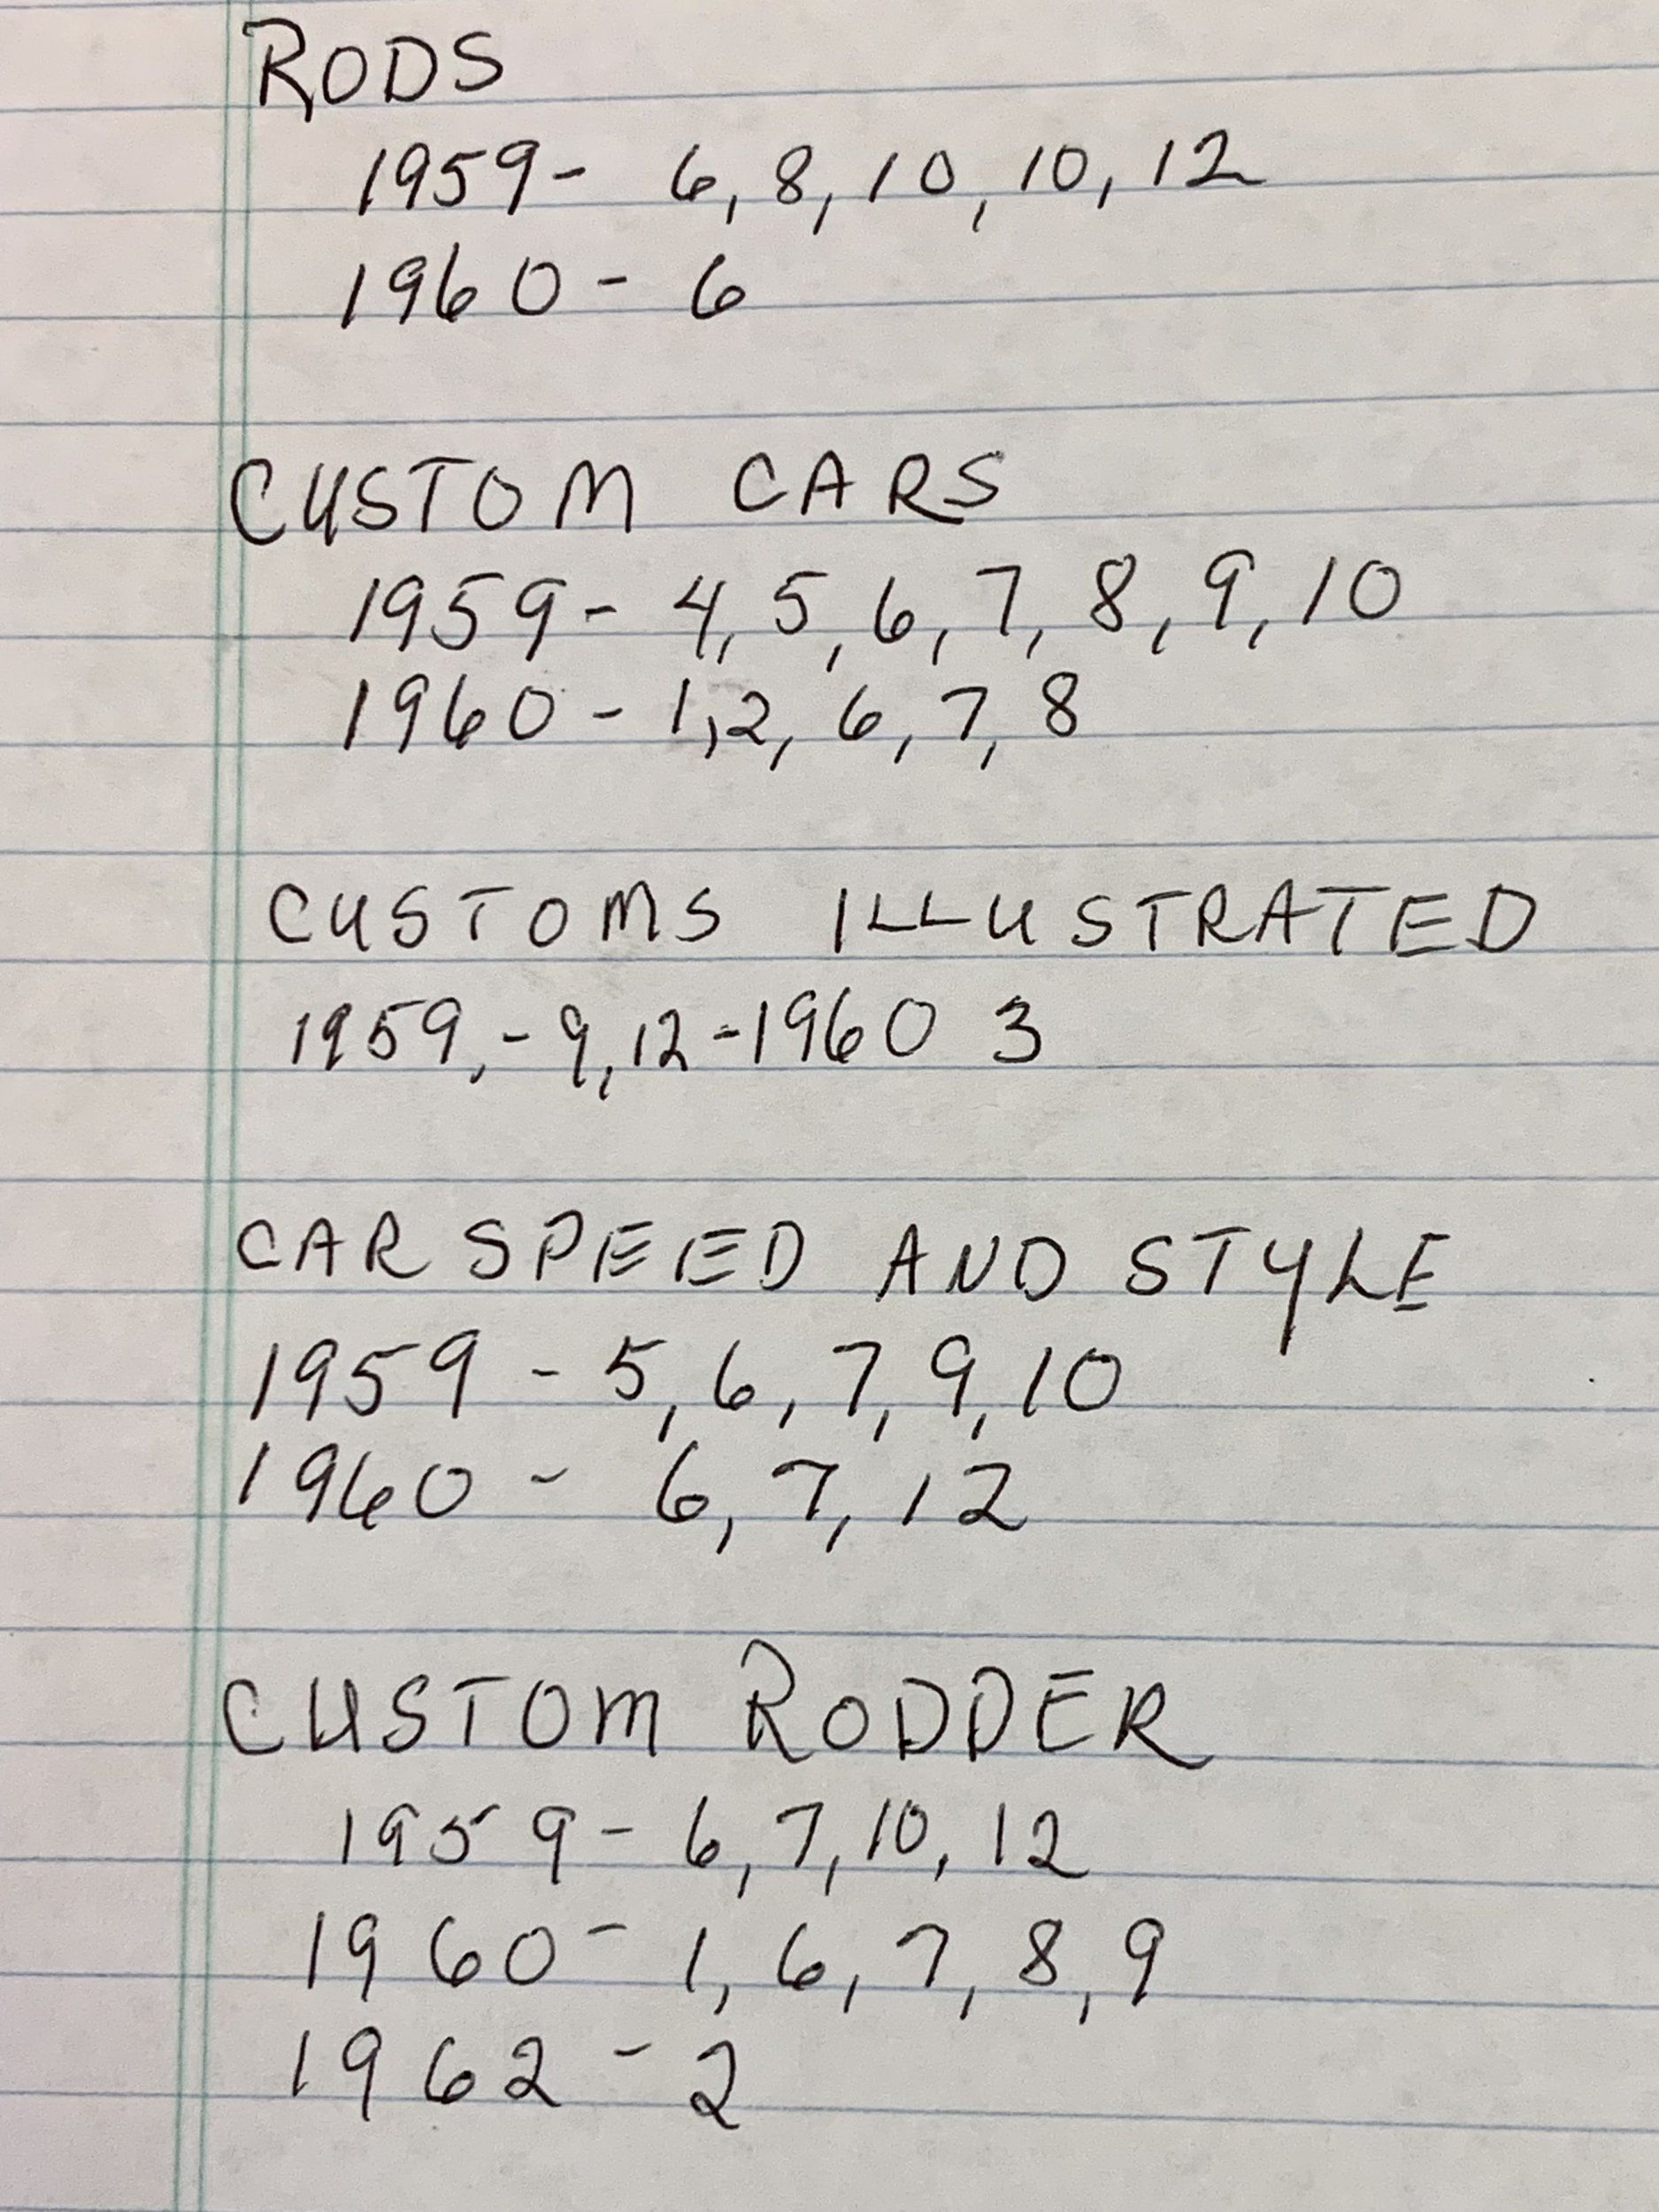 RODS
1959- 6, 8, 10, 10, 12
1960- 6
CUSTOM CARS
1959- 4, 5, 6, 7, 8, 9, 10
1960- 1,2, 6, 7, 8
CUSTOMS ILLUSTRATED
1959,- 9, 12 -1960 3
CAR SPEED AND STYLE
1959 - 5, 6, 7, 9, 10
1960 - 6, 7, 12
CUSTOM RODDER
1959- 6, 7, 10, 12
1960- 1, 6, 7, 8, 9
1962 - 2